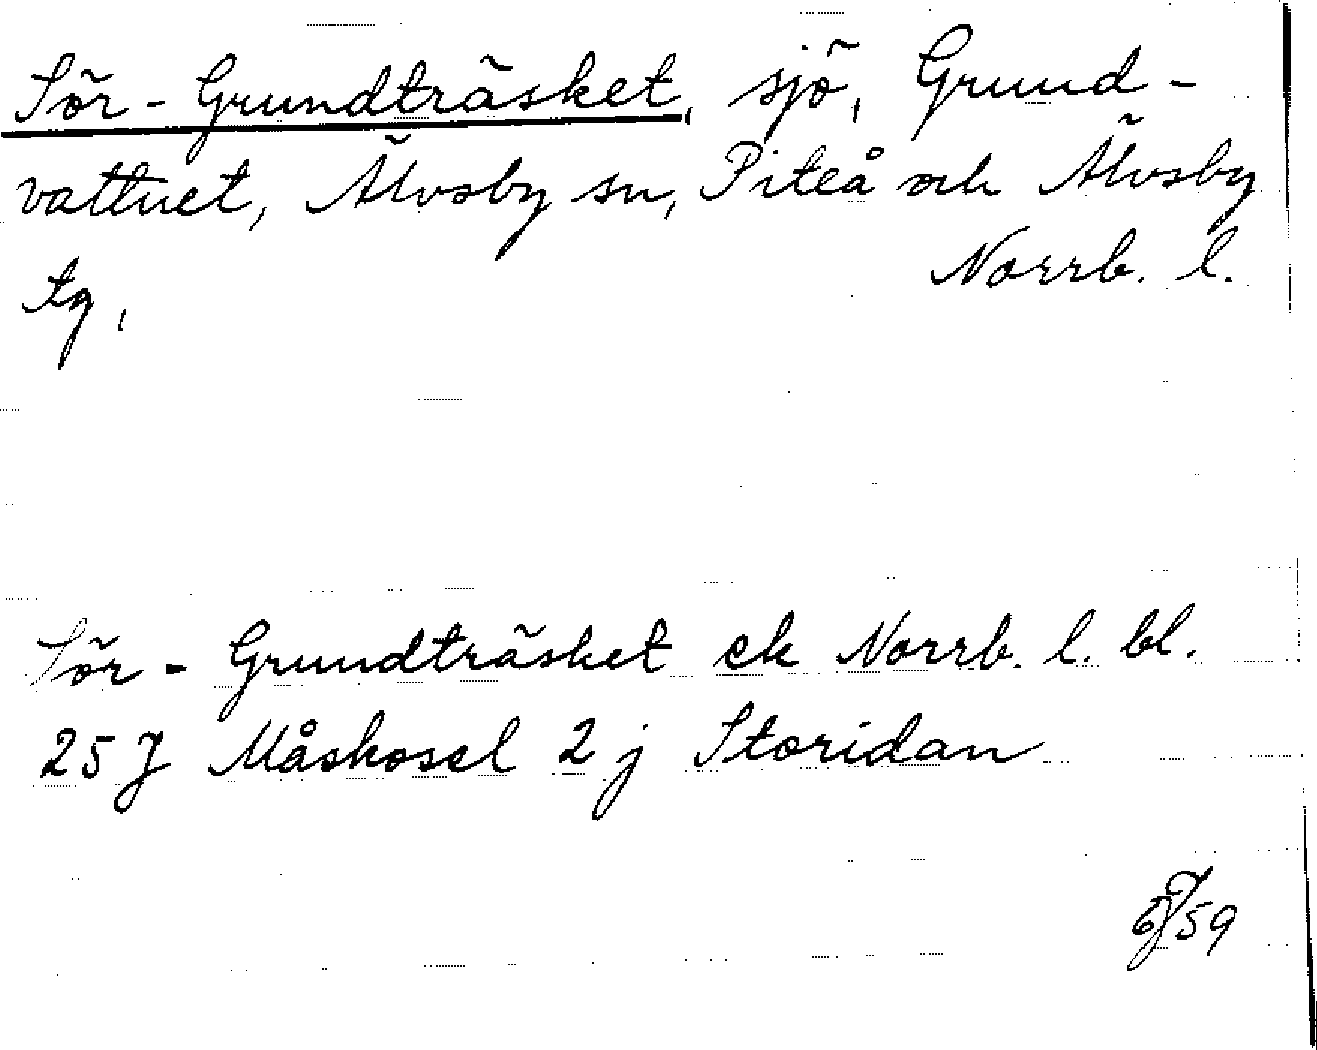 Sör-Grundträsket, sjö, Grund-
vattnet, Älvsby sn, Piteå och Älvsby
tg,
Norrb. l.
Sör-Grundträsket ek Norrb. l. bl.
25 J Måskosel 2 j Storidan
59